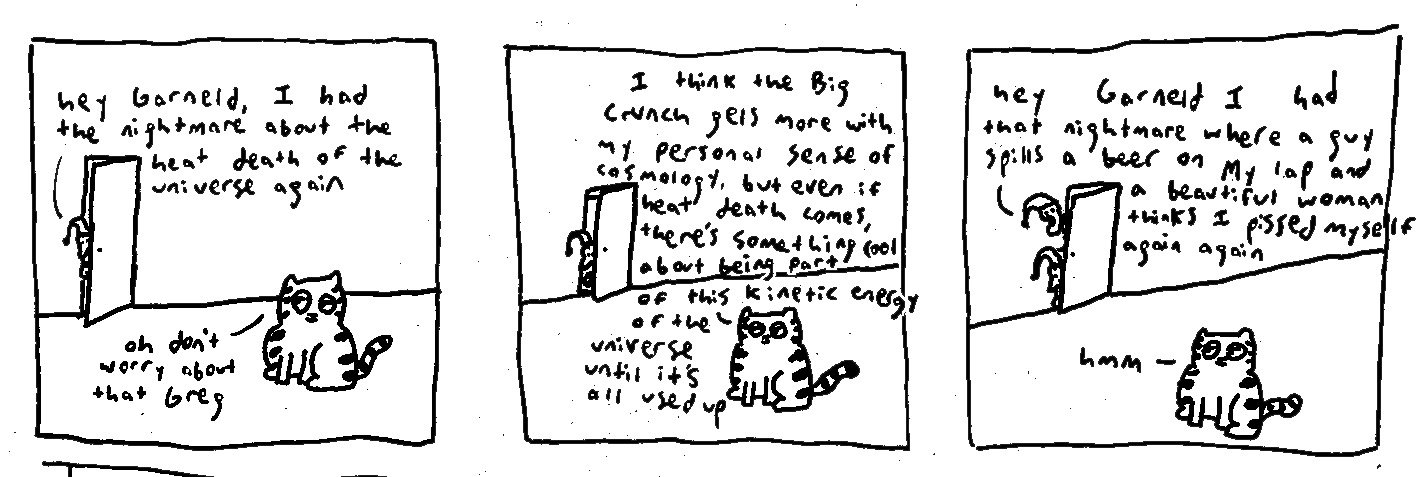 hey Garneld, I had
the nightmare about the
heat death of the
universe again
oh don't
worry about
that Greg
I think the Big
Crunch gels more with
my personal sense of
cosmology, but even if
heat death comes,
there's something cool
about being part
of this kinetic energy
of the
universe
until it's
all used up
hey Garneld I had
that nightmare where a guy
spills a beer on my lap and
a beautiful woman
thinks I pissed myself
again again
hmm